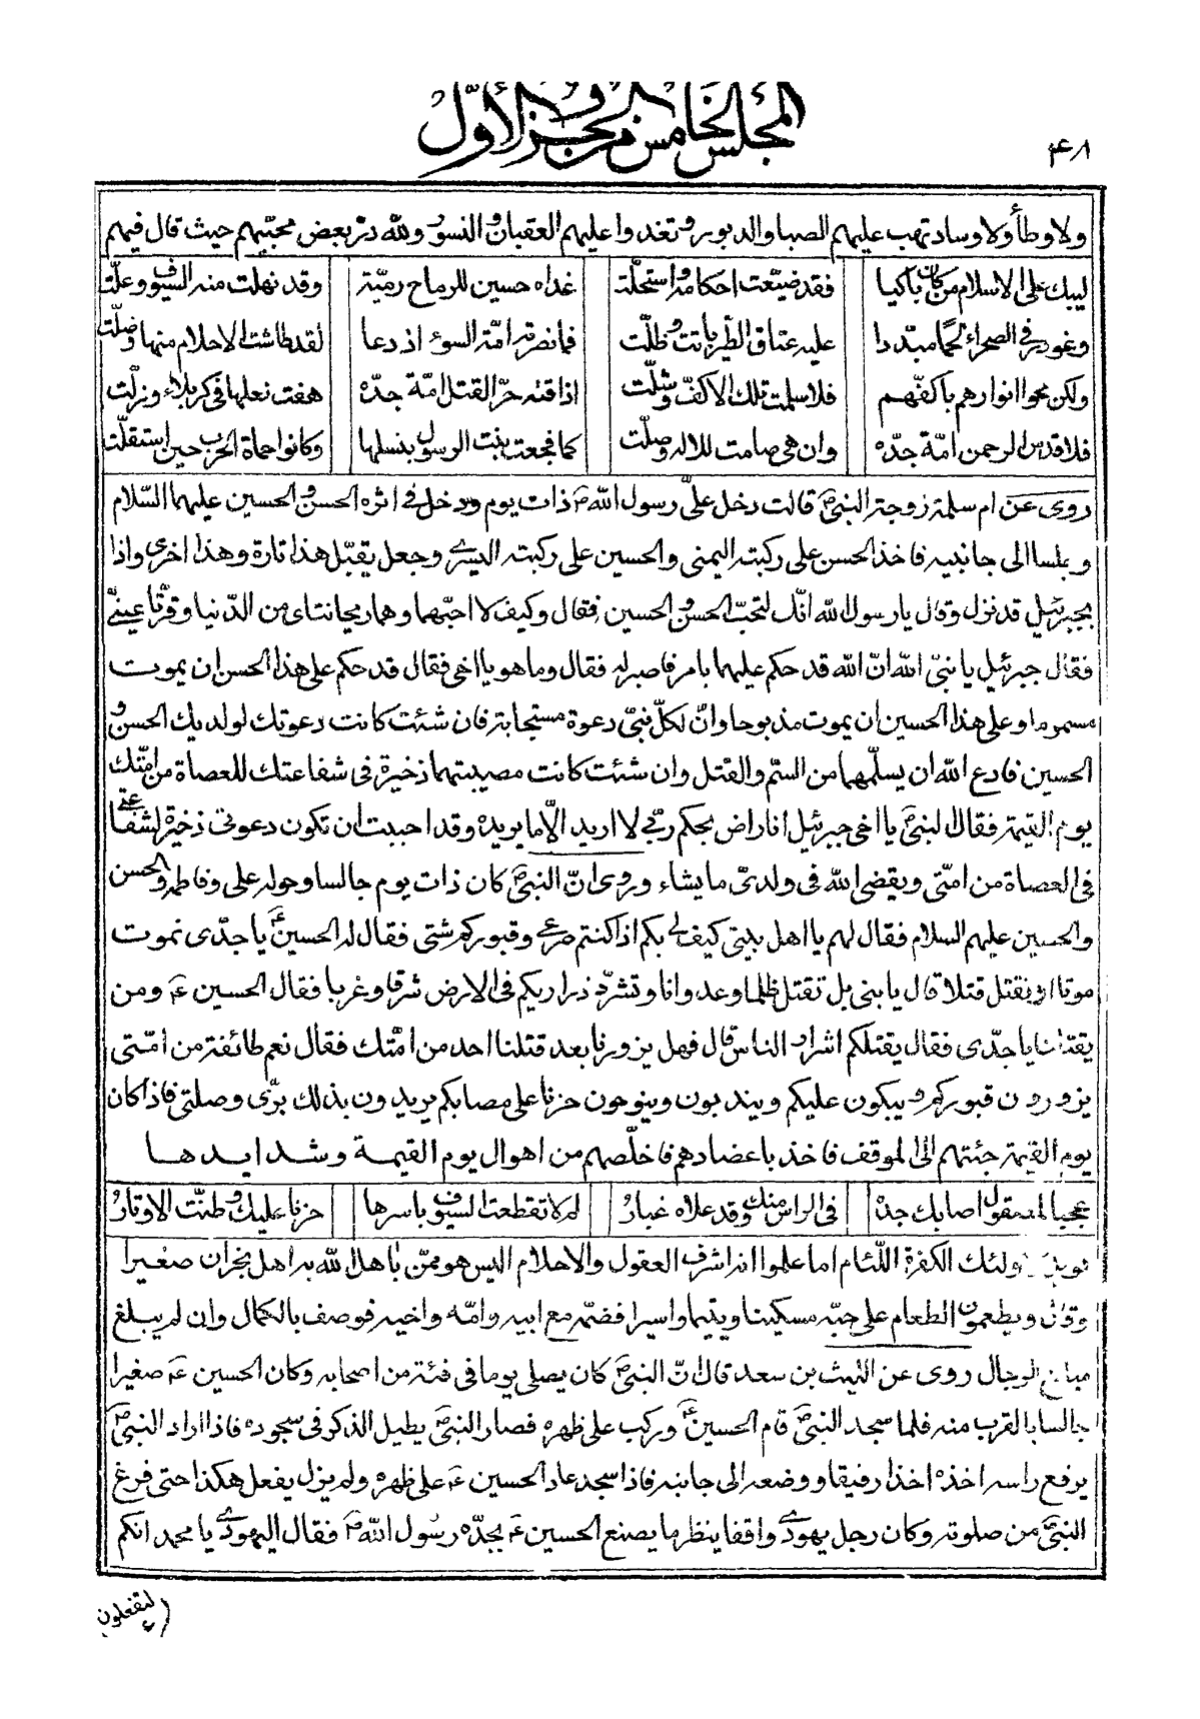 المجلس الخامس من الجزء الأول
۴۸
ولا وطأ ولا وساد تهب عليهم الصبا والدبور وتغدوا عليهم العقبان والنسور ولله در بعض محبيهم حيث قال فيهم
ليبك على الاسلام من كان باكيا فقد ضيعت احكامه واستحلت غداه حسين للرماح رميّة وقد نهلت منه السيوف وعلّت
وغودر فى الصحراء لحما مبدّدا عليه عتاق الطير باتت وظلّت فما نصرته امّة السوء اذ دعا لقد طاشت الاحلام منها وضلّت
ولكن محوا انوارهم باكفّهم فلا سلمت تلك الاكفّ وشلّت اذاقته حرّ القتل امّة جدّه هفت نعلها فى كربلاء وزلّت
فلا قدس الرحمن امّة جدّه وان هى صامت للاله وصلّت كما فجعت بنت الرسول بنسلها وكانوا حماة الحرب حين استقلّت
روى عن ام سلمة زوجة النبىّ ص قالت دخل علىّ رسول الله ص ذات يوم ودخل فى اثره الحسن والحسين عليهما السّلام
وجلسا الى جانبيه فاخذ الحسن على ركبته اليمنى والحسين على ركبته اليسرى وجعل يقبّل هذا تارة وهذا اخرى واذا
بجبرئيل قد نزل وقال يا رسول الله انّك لتحبّ الحسن والحسين فقال وكيف لا احبّهما وهما ريحانتاى من الدّنيا وقرّتا عينىّ
فقال جبرئيل يا نبىّ الله انّ الله قد حكم عليهما بامر فاصبر له فقال وما هو يا اخى فقال قد حكم على هذا الحسن ان يموت
مسموما وعلى هذا الحسين ان يموت مذبوحا وانّ لكلّ نبىّ دعوة مستجابة فان شئت كانت دعوتك لولديك الحسن و
الحسين فادع الله ان يسلّمهما من السّم والقتل وان شئت كانت مصيبتهما ذخيرة فى شفاعتك للعصاة من امّتك
يوم القيمة فقال النبىّ ص يا اخى جبرئيل انا راض بحكم ربّى لا اريد الّا ما يريده وقد احببت ان تكون دعوتى ذخيرة لشفاعتى
فى العصاة من امّتى ويقضى الله فى ولدىّ ما يشاء وروى انّ النبىّ ص كان ذات يوم جالسا وحوله على وفاطمة والحسن
والحسين عليهم السلام فقال لهم يا اهل بيتى كيف لى بكم اذا كنتم صرعى وقبوركم شتى فقال له الحسين ع يا جدّى نموت
موتا او نقتل قتلا قال يا بنى بل تقتل ظلما وعدوانا وتشرّد ذراريكم فى الارض شرقا وغربا فقال الحسين ع ومن
يقتلنا يا جدّى فقال يقتلكم اشرار الناس قال فهل يزورنا بعد قتلنا احد من امّتك فقال نعم طائفة من امّتى
يزورون قبوركم ويبكون عليكم ويندبون وينوحون حزنا على مصابكم يريدون بذلك برّى وصلتى فاذا كان
يوم القيمة جئتهم الى الموقف فاخذ باعضادهم فاخلّصهم من اهوال يوم القيمة وشدايدها
عجبا لمصقول اصابك حدّه فى الراس منك وقد علاه غبارُ لم لا تقطعت السيوف باسرها حزنا عليك وطنّت الاوتارُ
اولئك الكفرة اللّئام اما علموا انه اشرف العقول والاحلام اليس هو ممّن باهل الله به اهل نجران صغيرا
وقال ويطعمون الطعام على حبّه مسكينا ويتيما واسيرا فضمّه مع ابيه وامّه واخيه فوصف بالكمال وان لم يبلغ
مبلغ الرجال روى عن الليث بن سعد قال انّ النبىّ ص كان يصلى يوما فى فئة من اصحابه وكان الحسين ع صغيرا
جالسا بالقرب منه فلما سجد النبىّ ص قام الحسين ع وركب على ظهره فصار النبىّ ص يطيل الذكر فى سجوده فاذا اراد النبىّ ص
يرفع راسه اخذه اخذا رفيقا ووضعه الى جانبه فاذا سجد عاد الحسين ع على ظهره ولم يزل يفعل هكذا حتى فرغ
النبىّ ص من صلوته وكان رجل يهودى واقفا ينظر ما يصنع الحسين ع بجدّه رسول الله ص فقال اليهودى يا محمد انكم
لتفعلون